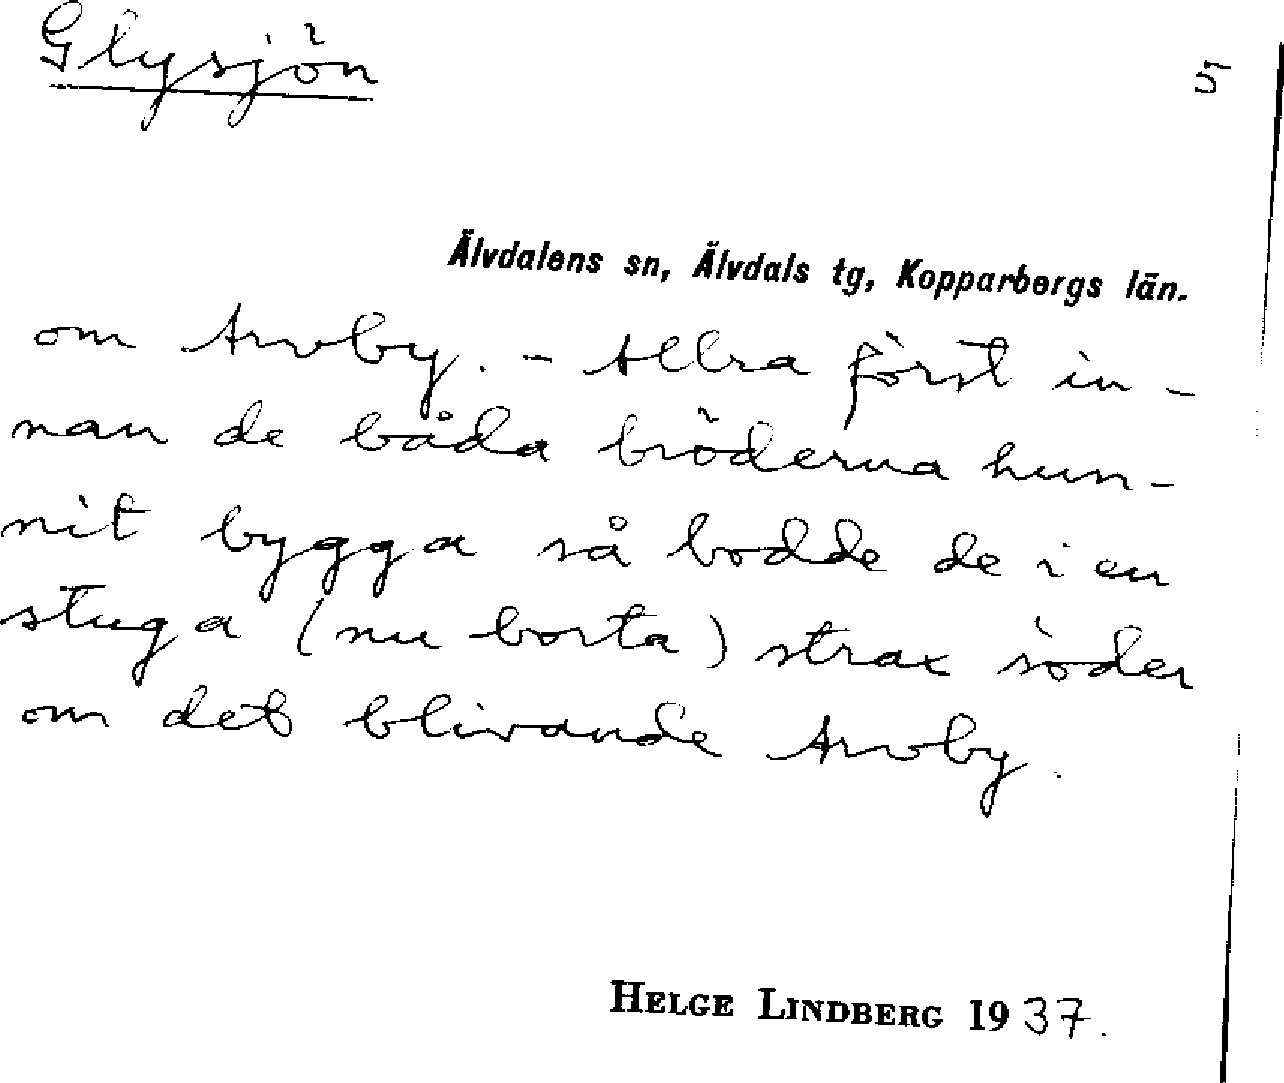 Glysjön
5
Älvdalens sn, Älvdals tg, Kopparbergs län.
om Arvoby. – Allra först in-
nan de båda bröderna hun-
nit bygga så bodde de i en
stuga (nu borta) strax söder
om det blivande Arvoby.
HELGE LINDBERG 1937.